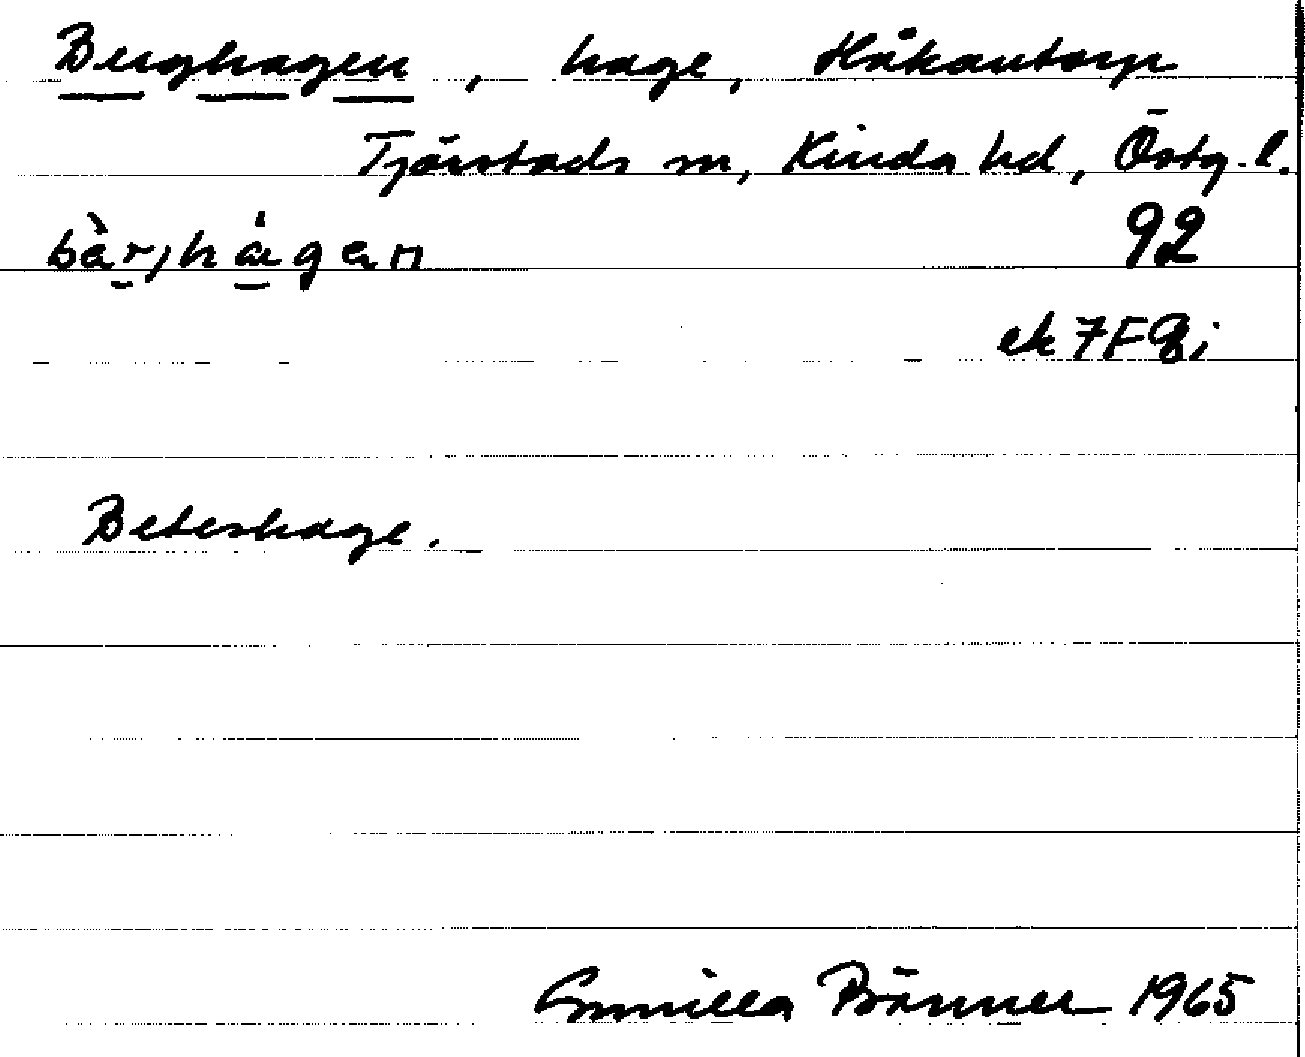 Berghagen, hage, Håkantorp
Tjärstads sn, Kinda hd, Östg. l.
bàr,hágen 92
ek 7F 8i
Beteshage.
Gunilla Bönner 1965